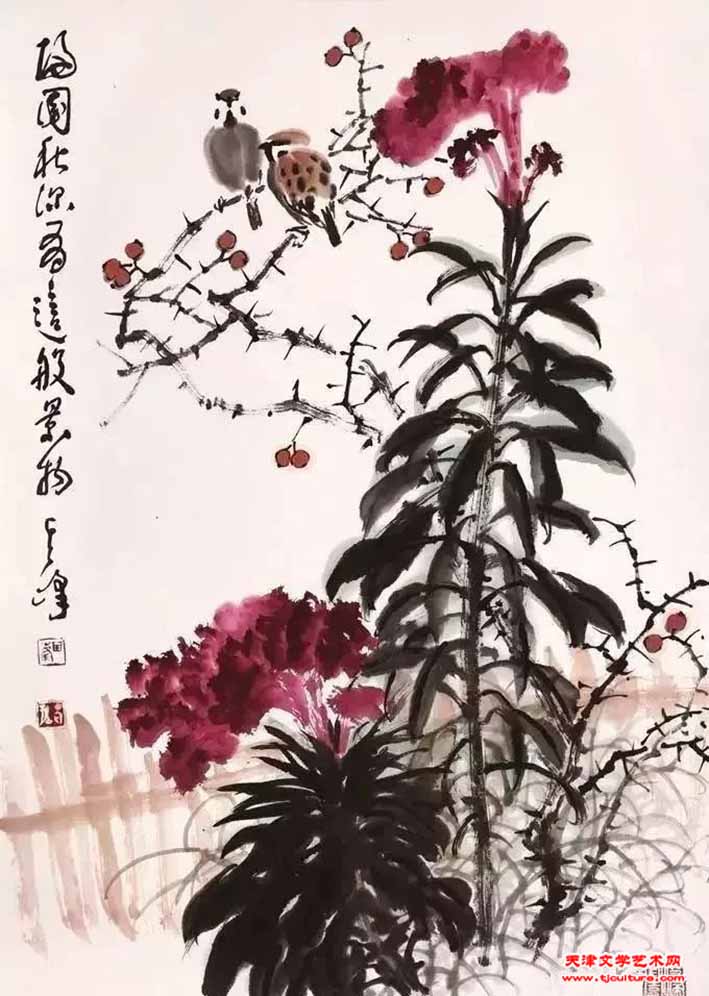 園秋深有這般景物
天津文学艺术网
www.tjculture.com